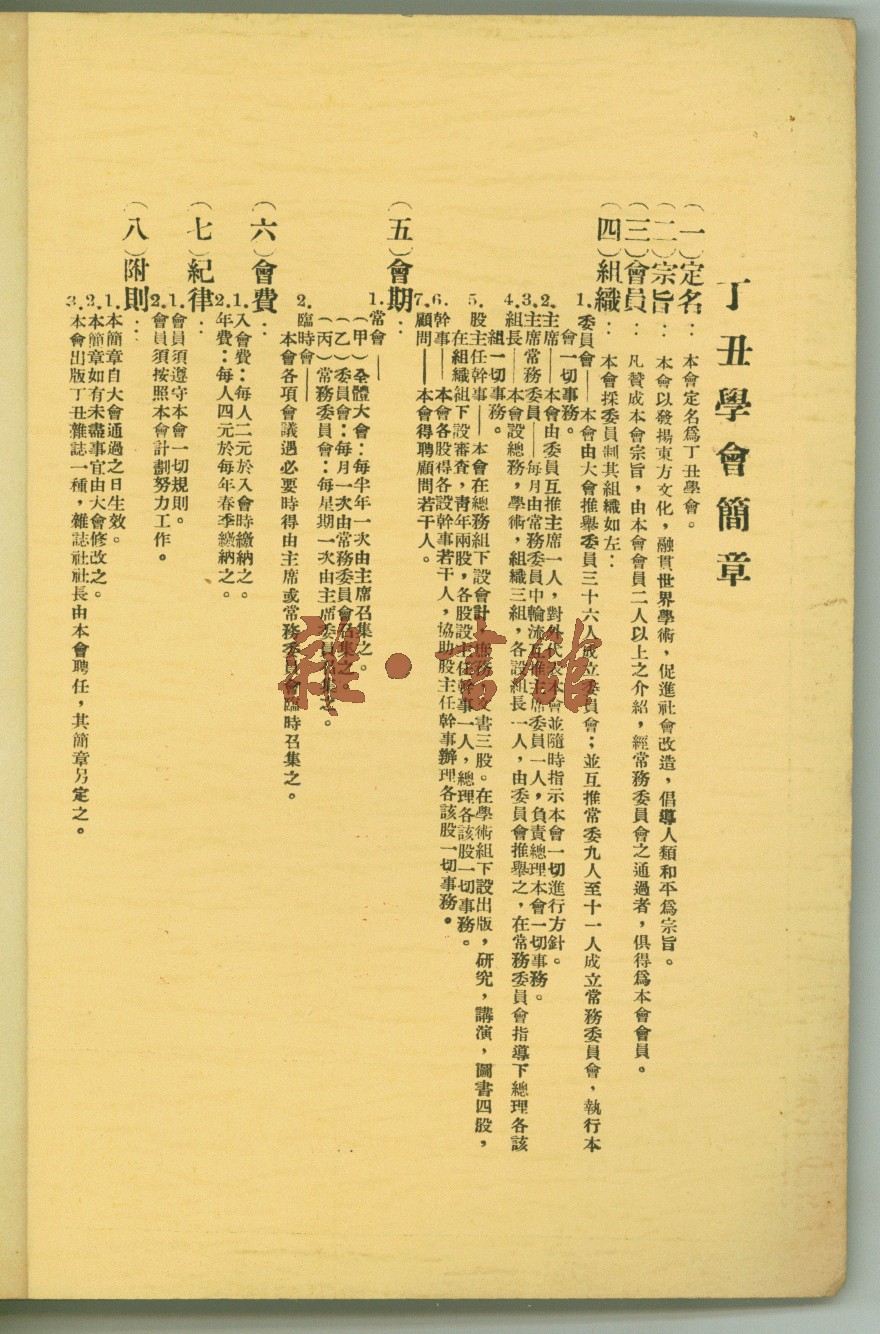 丁丑學會簡章
（一）定名：本會定名爲丁丑學會。
（二）宗旨：本會以發揚東方文化，融貫世界學術，促進社會改造，倡導人類和平爲宗旨。
（三）會員：凡贊成本會宗旨，由本會會員二人以上之介紹，經常務委員會之通過者，俱得爲本會會員。
（四）組織：本會採委員制其組織如左：
1.委員會——本會由大會推舉委員三十六人成立委員會；並互推常委九人至十一人成立常務委員會，執行本
會一切事務。
2.主席——本會由委員互推主席一人，對外代表本會並隨時指示本會一切進行方針。
3.主席常務委員——每月由常務委員中輪流互推主席委員一人，負責總理本會一切事務。
4.組長——本會設總務，學術，組織三組，各設組長一人，由委員會推舉之，在常務委員會指導下總理各該
組一切事務。
5.股主任幹事——本會在總務組下設會計，庶務，文書三股。在學術組下設出版，研究，講演，圖書四股，
在組織組下設審查，靑年兩股，各股設主任幹事一人，總理各該股一切事務。
6.幹事——本會各股得各設幹事若干人，協助股主任幹事辦理各該股一切事務。
7.顧問——本會得聘顧問若干人。
（五）會期：
1.常會——
（甲）全體大會：每半年一次由主席召集之。
（乙）委員會：每月一次由常務委員會召集之。
（丙）常務委員會：每星期一次由主席委員召集之。
2.臨時會——
本會各項會議遇必要時得由主席或常務委員會臨時召集之。
（六）會費：
1.入會費：每人二元於入會時繳納之。
2.年費：每人四元於每年春季繳納之。
（七）紀律：
1.會員須遵守本會一切規則。
2.會員須按照本會計劃努力工作。
（八）附則：
1.本簡章自大會通過之日生效。
2.本簡章如有未盡事宜由大會修改之。
3.本會出版丁丑雜誌一種，雜誌社社長由本會聘任，其簡章另定之。
雅·書館